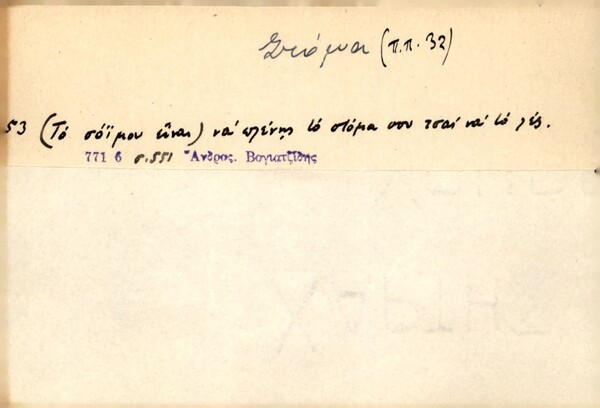 Στόμα (π.π. 32)
53 (Τό σόϊ μου εἶναι) νά πλένῃς τό στόμα σου τσαί νά τό λές.
771 6 σ.551 Ἄνδρος. Βογιατζίδης